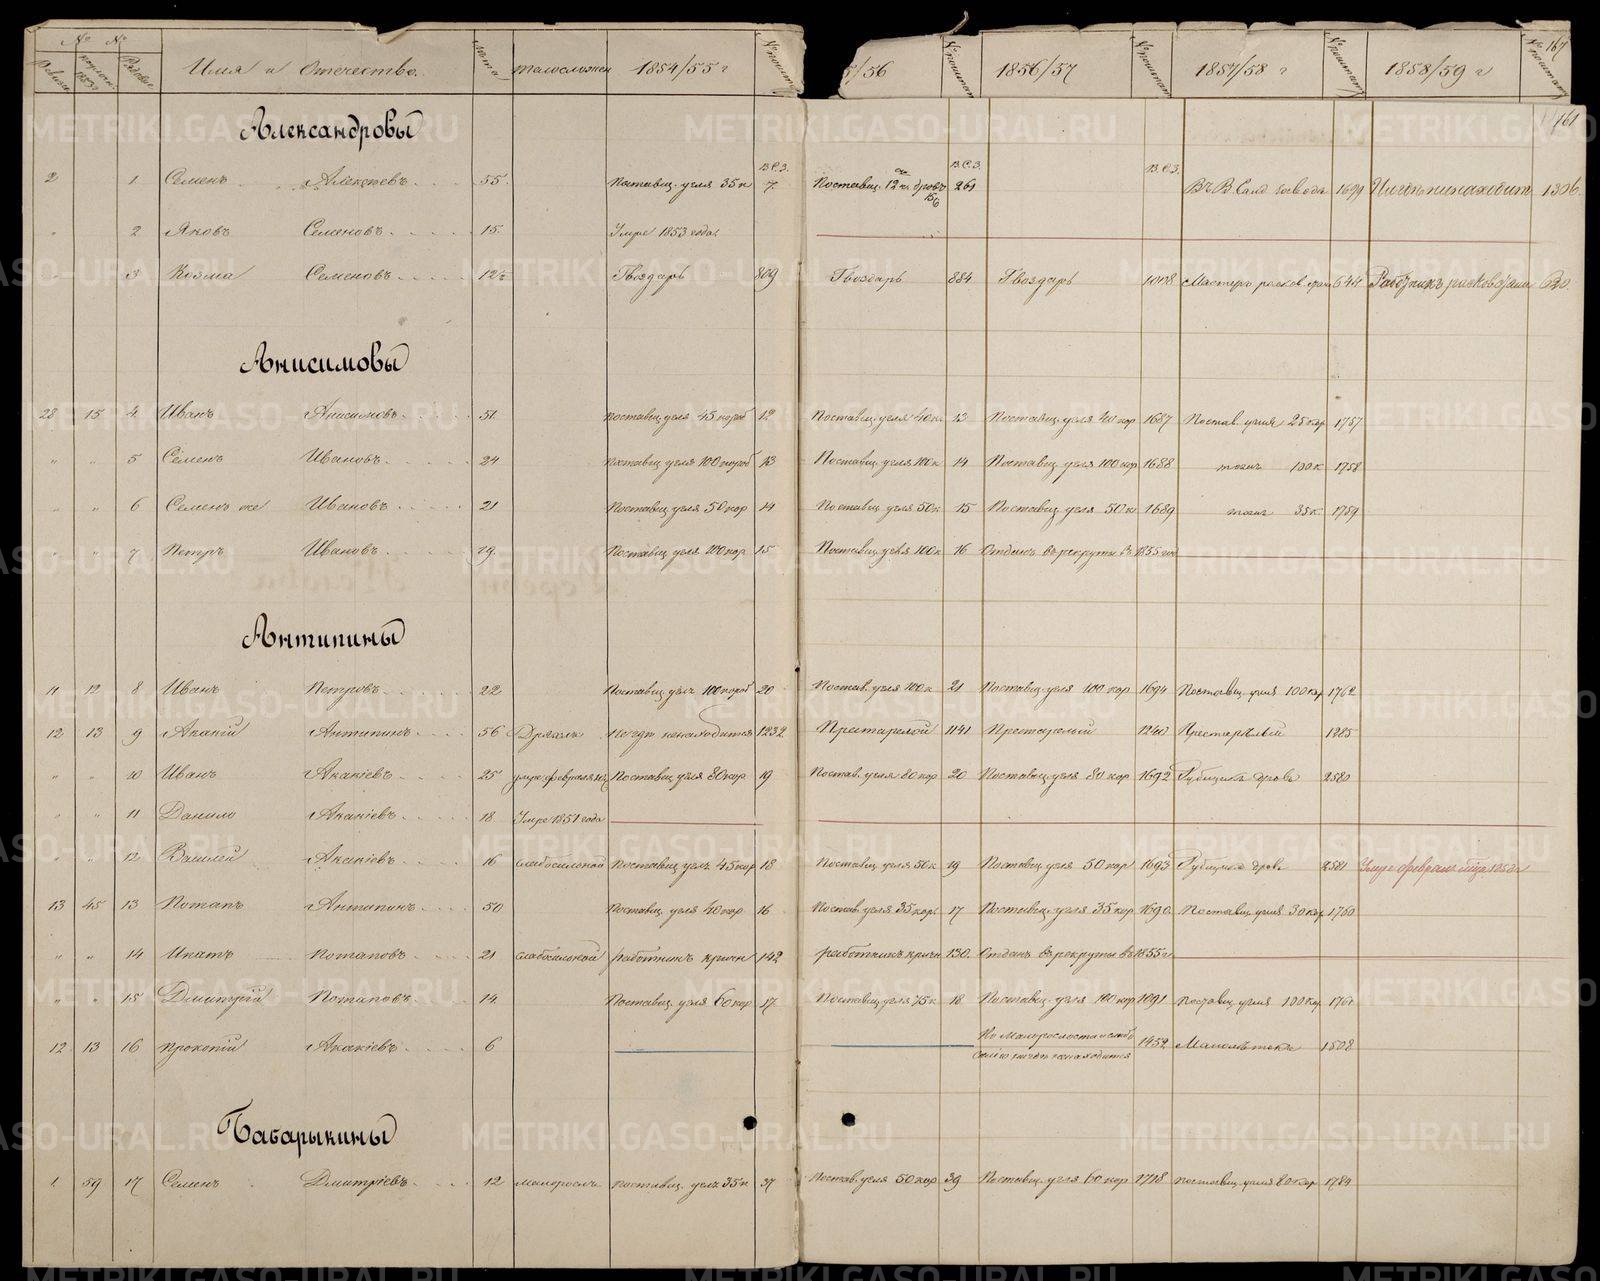 № № Имя и Отчество. Лета Телосложен 1854/55 г № поштат 5/56 № поштат 1856/57 № поштат 1857/58 г № поштат 1858/59 г № поштат 167
161
Александровы
В.С.З. В.С.З. В.С.З.
2 1 Семенъ Алексеевъ 55. Поставщ. угля 35 к 7. Поставщ. 12 к. дровъ 261 1694 1306.
" 2 Яковъ Семеновъ 15. Умре 1853 года.
" 3 Козма Семеновъ 12½ Гвоздарь 809 Гвоздарь 884 Гвоздарь 1078 Мастеръ 644
Анисимовы
28 15 4 Иванъ Анисимовъ 51. поставщ. угля 45 короб 12 Поставщ. угля 40 к. 13 Поставщ. угля 40 кор 1687 Постав. угля 25 кор 1757
" " 5 Семенъ Ивановъ 24 поставщ угля 100 короб 13 Поставщ. угля 100 к 14 Поставщ угля 100 кор 1688 тоже 100 к 1758
" " 6 Семенъ же Ивановъ 21 Поставщ угля 50 кор 14 Поставщ угля 50 к 15 Поставщ угля 50 к 1689 тоже 35 к. 1759
" " 7 Петръ Ивановъ 19. Поставщ угля 100 кор 15 Поставщ угля 100 к 16 Отданъ въ рекруты въ 1855 год
Антипины
11 12 8 Иванъ Петровъ 22 Поставщ угля 100 короб 20 Постав. угля 100 к 21 Поставщ. угля 100 кор 1694 Поставщ. угля 100 кор 1762
12 13 9 Акакій Антипинъ 56 Дряхлъ Негдѣ ненаходится 1232 Престарелой 1141 Престарелый 1240 Престарѣлый 1285
" " 10 Иванъ Акакіевъ 25 умре февраля Поставщ угля 80 кор 19 Постав. угля 80 кор 20 Поставщ. угля 80 кор 1692 Рубщикъ дровъ 2580
" " 11 Данило Акакіевъ 18 Умре 1851 года
" " 12 Василей Акакіевъ 16 слабосильной Поставщ угля 45 кор 18 Поставщ угля 50 к 19 Поставщ угля 50 кор 1693 Рубщикъ дровъ 2581 Умре февраля
13 45 13 Потапъ Антипинъ 50 Поставщ. угля 40 кор 16 Постав. угля 35 кор. 17 Поставщ. угля 35 кор 1690. Поставщ угля 30 кор 1760
" " 14 Ипатъ Потаповъ 21 слабосильной работникъ кричн 142 работникъ кричн 130. Отданъ въ рекруты въ 1855 г
" " 15 Дмитрій Потаповъ 14 Поставщ. угля 60 кор 17. Поставщ. угля 75 к 18 Поставщ. угля 100 кор 1691 поставщ. угля 100 кор 1761
12 13 16 Прокопій Акакіевъ 6 По малорослости и слабо
силію нигдѣ ненаходится 1452 Малолѣтокъ 1508
Бабарыкины
1. 59 17 Семенъ Дмитріевъ 12 малорослъ поставщ. угля 35 к 37 Постав. угля 50 кор 39 Поставщ. угля 60 кор 1718 поставщ. угля 80 кор 1784